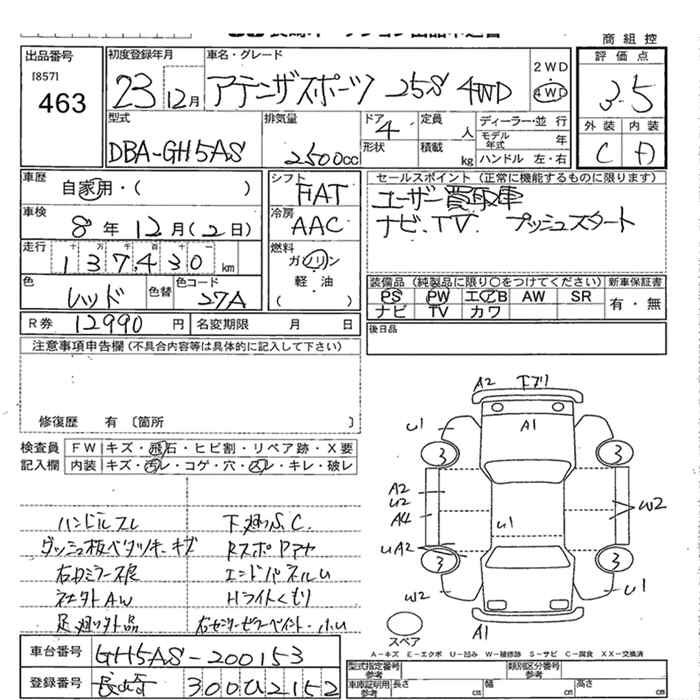 商 組 控
出品番号
[857]
463
初度登録年月
23 12月
車名・グレード
アテンザスポーツ 25S 4WD
2WD
4WD
評 価 点
3.5
外 装 内 装
C A
型式
DBA-GH5AS
排気量
2500cc
ドア
4
形状
定員
人
積載
kg
ディーラー・並 行
モデル年式 年
ハンドル 左・右
車歴
自家用・( )
シフト
FAT
セールスポイント (正常に機能するものに限ります)
ユーザー買取車
ナビ.TV. プッシュスタート
車検
8 年 12 月 (2 日)
冷房
AAC
走行
137,430 km
燃料
ガソリン
軽 油
( )
色
レッド
色替
色コード
27A
装備品 (純製品に限り○をつけてください)
新車保証書
PS PW エアB AW SR
ナビ TV カワ
有・無
R券 12990 円
名変期限 月 日
後日品
注意事項申告欄 (不具合内容等は具体的に記入して下さい)
修復歴 有 〔箇所 〕
検査員
記入欄
FW キズ・飛石・ヒビ割・リペア跡・X要
内装 キズ・汚レ・コゲ・穴・凹レ・キレ・破レ
ハンドルスレ
下廻りS.C.
ダッシュ板ベタツキ・キズ
RスポPアヤ
エンドパネルU
社外AW
Hライトくもり
足廻り外品
A2 下ブリ
U1
A1
3 3
A2
U2
A4
U1
W2
UA2
3 3
W2
U1
A1
スペア
A-キズ E-エクボ U-凹み W-補修跡 S-サビ C-腐食 XX-交換済
車台番号 GH5AS-200153
登録番号 長崎 300 な 2152
型式指定番号
参考
類別区分番号
参考
車庫証明用
参考
長さ cm
幅 cm
高さ cm